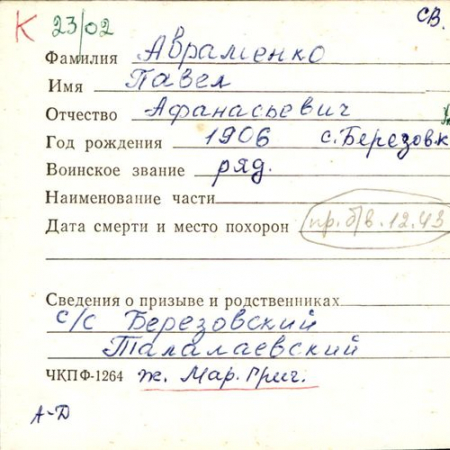 К 23/02 св.
Фамилия Авраменко
Имя Павел
Отчество Афанасьевич
Год рождения 1906 с. Березовк
Воинское звание ряд.
Наименование части
Дата смерти и место похорон пр. б/в. 12.43
Сведения о призыве и родственниках
с/с Березовский
Талалаевский
ЧКПФ-1264 ж. Мар. Григ.
А-Д